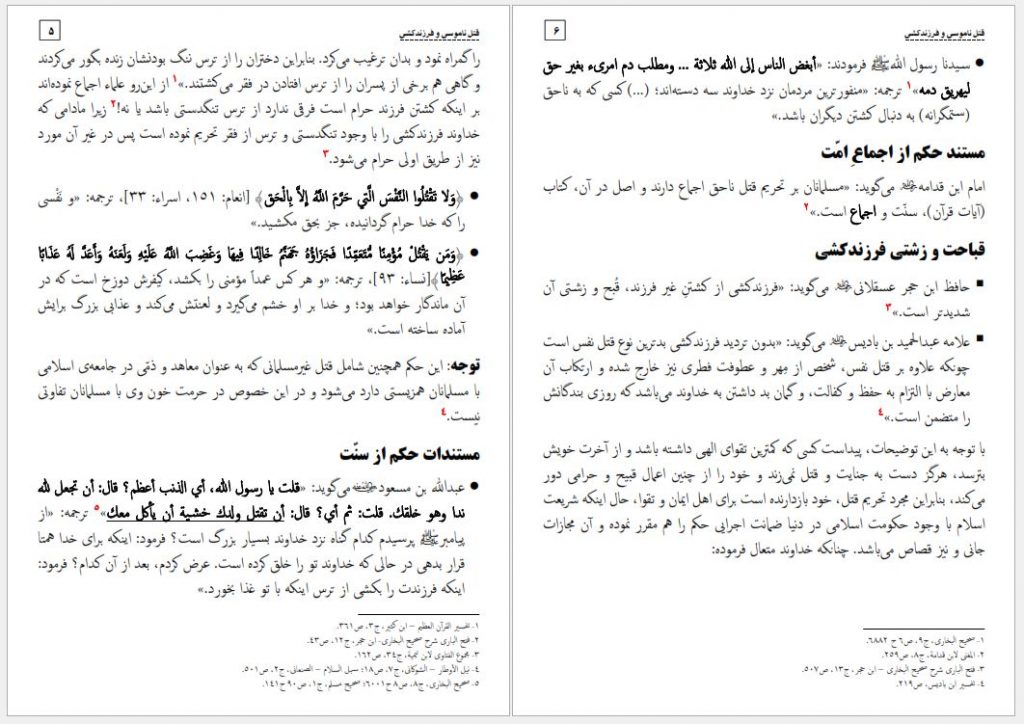 قتل ناموسی و فرزندکشی
۵
را گمراه نمود و بدان ترغیب می‌کرد. بنابراین دختران را از ترس ننگ بودنشان زنده بگور می‌کردند
و گاهی هم برخی از پسران را از ترس افتادن در فقر می‌کشتند.»۱ از این‌رو علماء اجماع نموده‌اند
بر اینکه کشتن فرزند حرام است فرقی ندارد از ترس تنگدستی باشد یا نه!۲ زیرا مادامی که
خداوند فرزندکشی را با وجود تنگدستی و ترس از فقر تحریم نموده است پس در غیر آن مورد
نیز از طریق اولی حرام می‌شود.۳
● ﴿وَلا تَقْتُلُوا النَّفْسَ الَّتي حَرَّمَ اللَّهُ إِلاَّ بِالْحَق﴾ [انعام: ۱۵۱، اسراء: ۳۳]، ترجمه: «و نَفْسی
را که خدا حرام گردانیده، جز بحق مکشید.»
● ﴿وَمَن يَقْتُلْ مُؤْمِنًا مُّتَعَمِّدًا فَجَزَاؤُهُ جَهَنَّمُ خَالِدًا فِيهَا وَغَضِبَ اللَّهُ عَلَيْهِ وَلَعَنَهُ وَأَعَدَّ لَهُ عَذَابًا
عَظِيمًا﴾[نساء: ۹۳]، ترجمه: «و هر کس عمداً مؤمنی را بکشد، کیفرش دوزخ است که در
آن ماندگار خواهد بود؛ و خدا بر او خشم می‌گیرد و لعنتش می‌کند و عذابی بزرگ برایش
آماده ساخته است.»
توجه: این حکم همچنین شامل قتل غیرمسلمانی که به عنوان معاهد و ذمّی در جامعه‌ی اسلامی
با مسلمانان همزیستی دارد می‌شود و در این خصوص در حرمت خون وی با مسلمانان تفاوتی
نیست.۴
مستندات حکم از سنّت
● عبدالله بن مسعود می‌گوید: «قلت يا رسول الله، أي الذنب أعظم؟ قال: أن تجعل لله
ندا وهو خلقك. قلت: ثم أي؟ قال: أن تقتل ولدك خشية أن يأكل معك»۵ ترجمه: «از
پیامبرﷺ پرسیدم کدام گناه نزد خداوند بسیار بزرگ است؟ فرمود: اینکه برای خدا همتا
قرار بدهی در حالی که خداوند تو را خلق کرده است. عرض کردم، بعد از آن کدام؟ فرمود:
اینکه فرزندت را بکشی از ترس اینکه با تو غذا بخورد.»
۱. تفسیر القرآن العظیم – ابن کثیر، ج۳، ص۳۶۱.
۲. فتح الباری شرح صحیح البخاری- ابن حجر، ج۱۲، ص۴۳.
۳. مجموع الفتاوی لابن تیمیة، ج۳۴، ص۱۶۲.
۴. نیل الأوطار – الشوکانی، ج۷، ص۱۸؛ سبل السلام – الصنعانی، ج۲، ص۵۰۱.
۵. صحیح البخاری، ج۸، ص۸ ح۶۰۰۱؛ صحیح مسلم، ج۱، ص۹۰ ح۱۴۱.
قتل ناموسی و فرزندکشی
۶
● سیدنا رسول اللهﷺ فرمودند: «أبغض الناس إلى الله ثلاثة ... ومطلب دم امرىء بغير حق
ليهريق دمه»۱ ترجمه: «منفورترین مردمان نزد خداوند سه دسته‌اند؛ (...)کسی که به ناحق
(ستمگرانه) به دنبال کشتن دیگران باشد.»
مستند حکم از اجماعِ امّت
امام ابن قدامه می‌گوید: «مسلمانان بر تحریم قتل ناحق اجماع دارند و اصل در آن، کتاب
(آیات قرآن)، سنّت و اجماع است.»۲
قباحت و زشتی فرزندکشی
■ حافظ ابن حجر عسقلانی می‌گوید: «فرزندکشی از کشتنِ غیر فرزند، قُبح و زشتی آن
شدیدتر است.»۳
■ علامه عبدالحمید بن بادیس می‌گوید: «بدون تردید فرزندکشی بدترین نوع قتل نفس است
چونکه علاوه بر قتل نفس، شخص از مِهر و عطوفت فطری نیز خارج شده و ارتکاب آن
معارض با التزام به حفظ و کفالت، و گمان بد داشتن به خداوند می‌باشد که روزی بندگانش
را متضمن است.»۴
با توجه به این توضیحات، پیداست کسی که کمترین تقوای الهی داشته باشد و از آخرت خویش
بترسد، هرگز دست به جنایت و قتل نمی‌زند و خود را از چنین اعمال قبیح و حرامی دور
می‌کند، بنابراین مجرد تحریم قتل، خود بازدارنده است برای اهل ایمان و تقوا، حال اینکه شریعت
اسلام با وجود حکومت اسلامی در دنیا ضمانت اجرایی حکم را هم مقرر نموده و آن مجازات
جانی و نیز قصاص می‌باشد. چنانکه خداوند متعال فرموده:
۱. صحیح البخاری، ج۹، ص۶ ح ۶۸۸۲.
۲. المغنی لابن قدامة، ج۸، ص۲۵۹.
۳. فتح الباری شرح صحیح البخاری – ابن حجر، ج۱۳، ص۵۰۷.
۴. تفسیر ابن بادیس، ص۲۱۹.